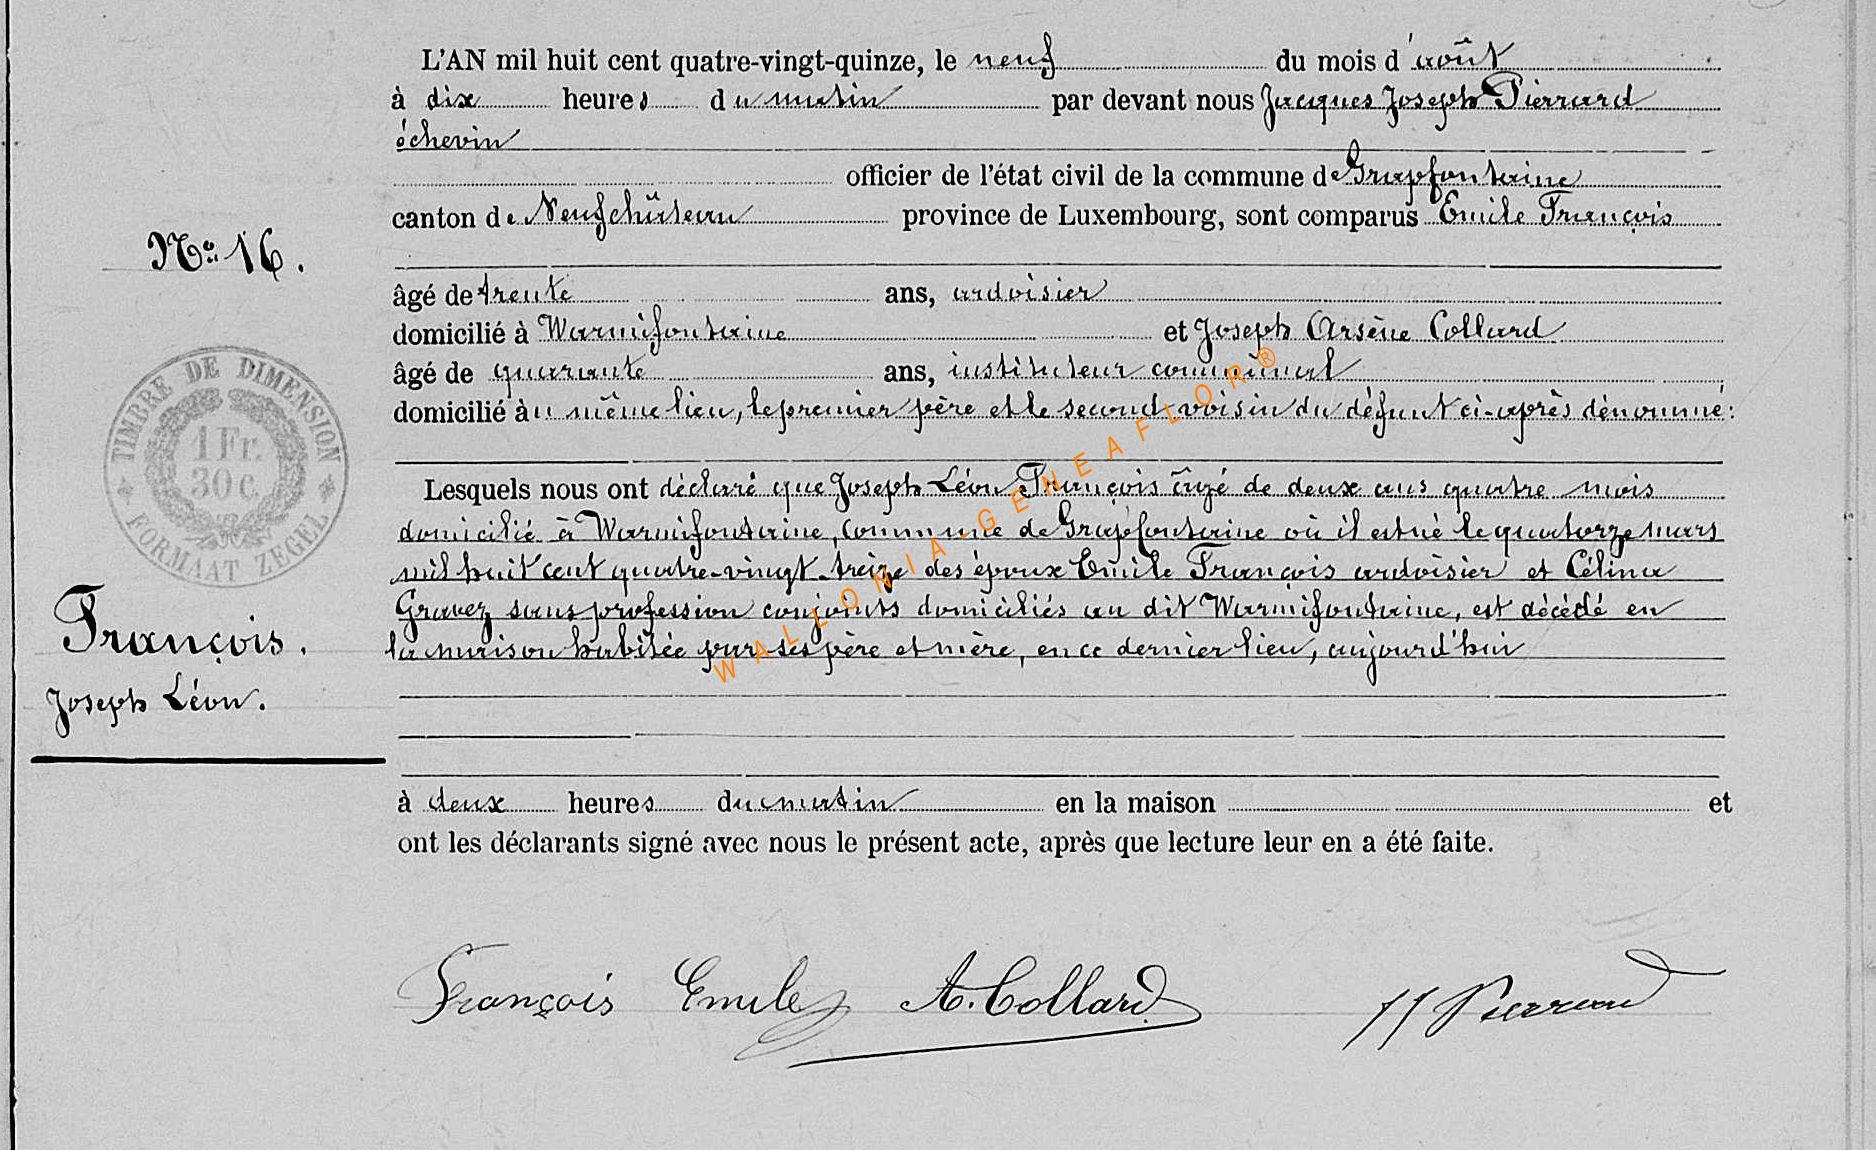 L'AN mil huit cent quatre-vingt-quinze, le neuf du mois d'août
à dix heures du matin par devant nous Jacques Joseph Pierrard
échevin
officier de l'état civil de la commune de Grapfontaine
canton de Neufchâteau province de Luxembourg, sont comparus Emile François
No. 16.
âgé de trente ans, ardoisier
domicilié à Warmifontaine et Joseph Arsène Collard
âgé de quarante ans, instituteur communal
domicilié au même lieu, le premier père et le second voisin du défunt ci-après dénommé:
TIMBRE DE DIMENSION
1 Fr.
30 c.
FORMAAT ZEGEL
Lesquels nous ont déclaré que Joseph Léon François âgé de deux ans quatre mois
domicilié à Warmifontaine, commune de Grapfontaine où il est né le quatorze mars
mil huit cent quatre-vingt-treize des époux Emile François ardoisier et Célina
Gravez sans profession conjoints domiciliés au dit Warmifontaine, est décédé en
la maison habitée par ses père et mère, en ce dernier lieu, aujourd'hui
François.
Joseph Léon.
à deux heures du matin en la maison et
ont les déclarants signé avec nous le présent acte, après que lecture leur en a été faite.
François Emile A. Collard JJ Pierrard
WALLONIA-GENEAFLOR®